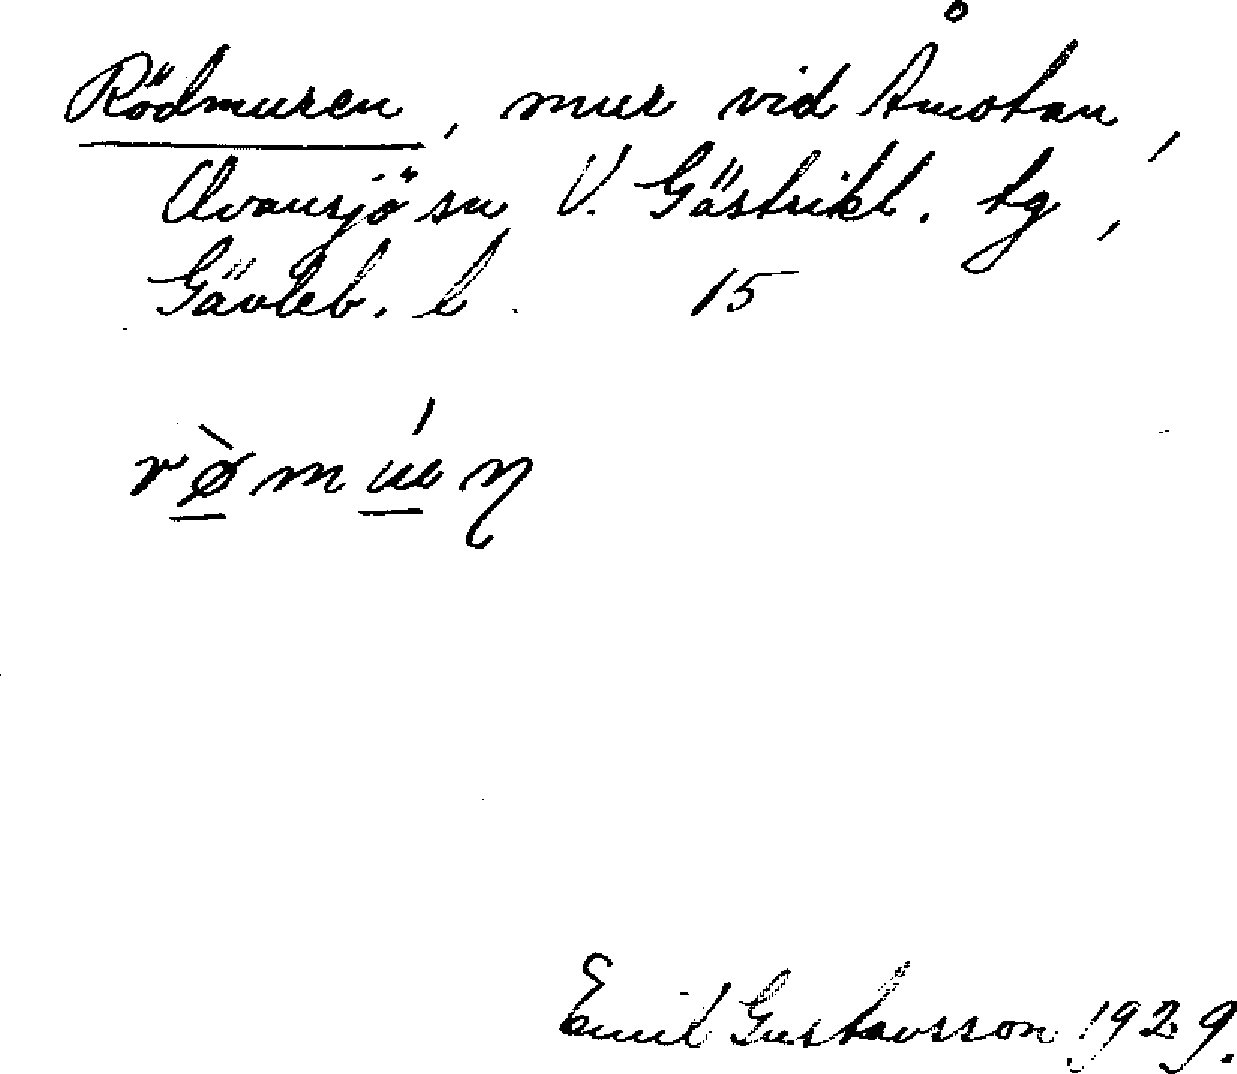 Rödmuren, mur vid Åmotan,
Ovansjö sn V. Gästrikl. tg,
Gävleb. l. 15
rø̀múuη
Emil Gustavsson 1929.